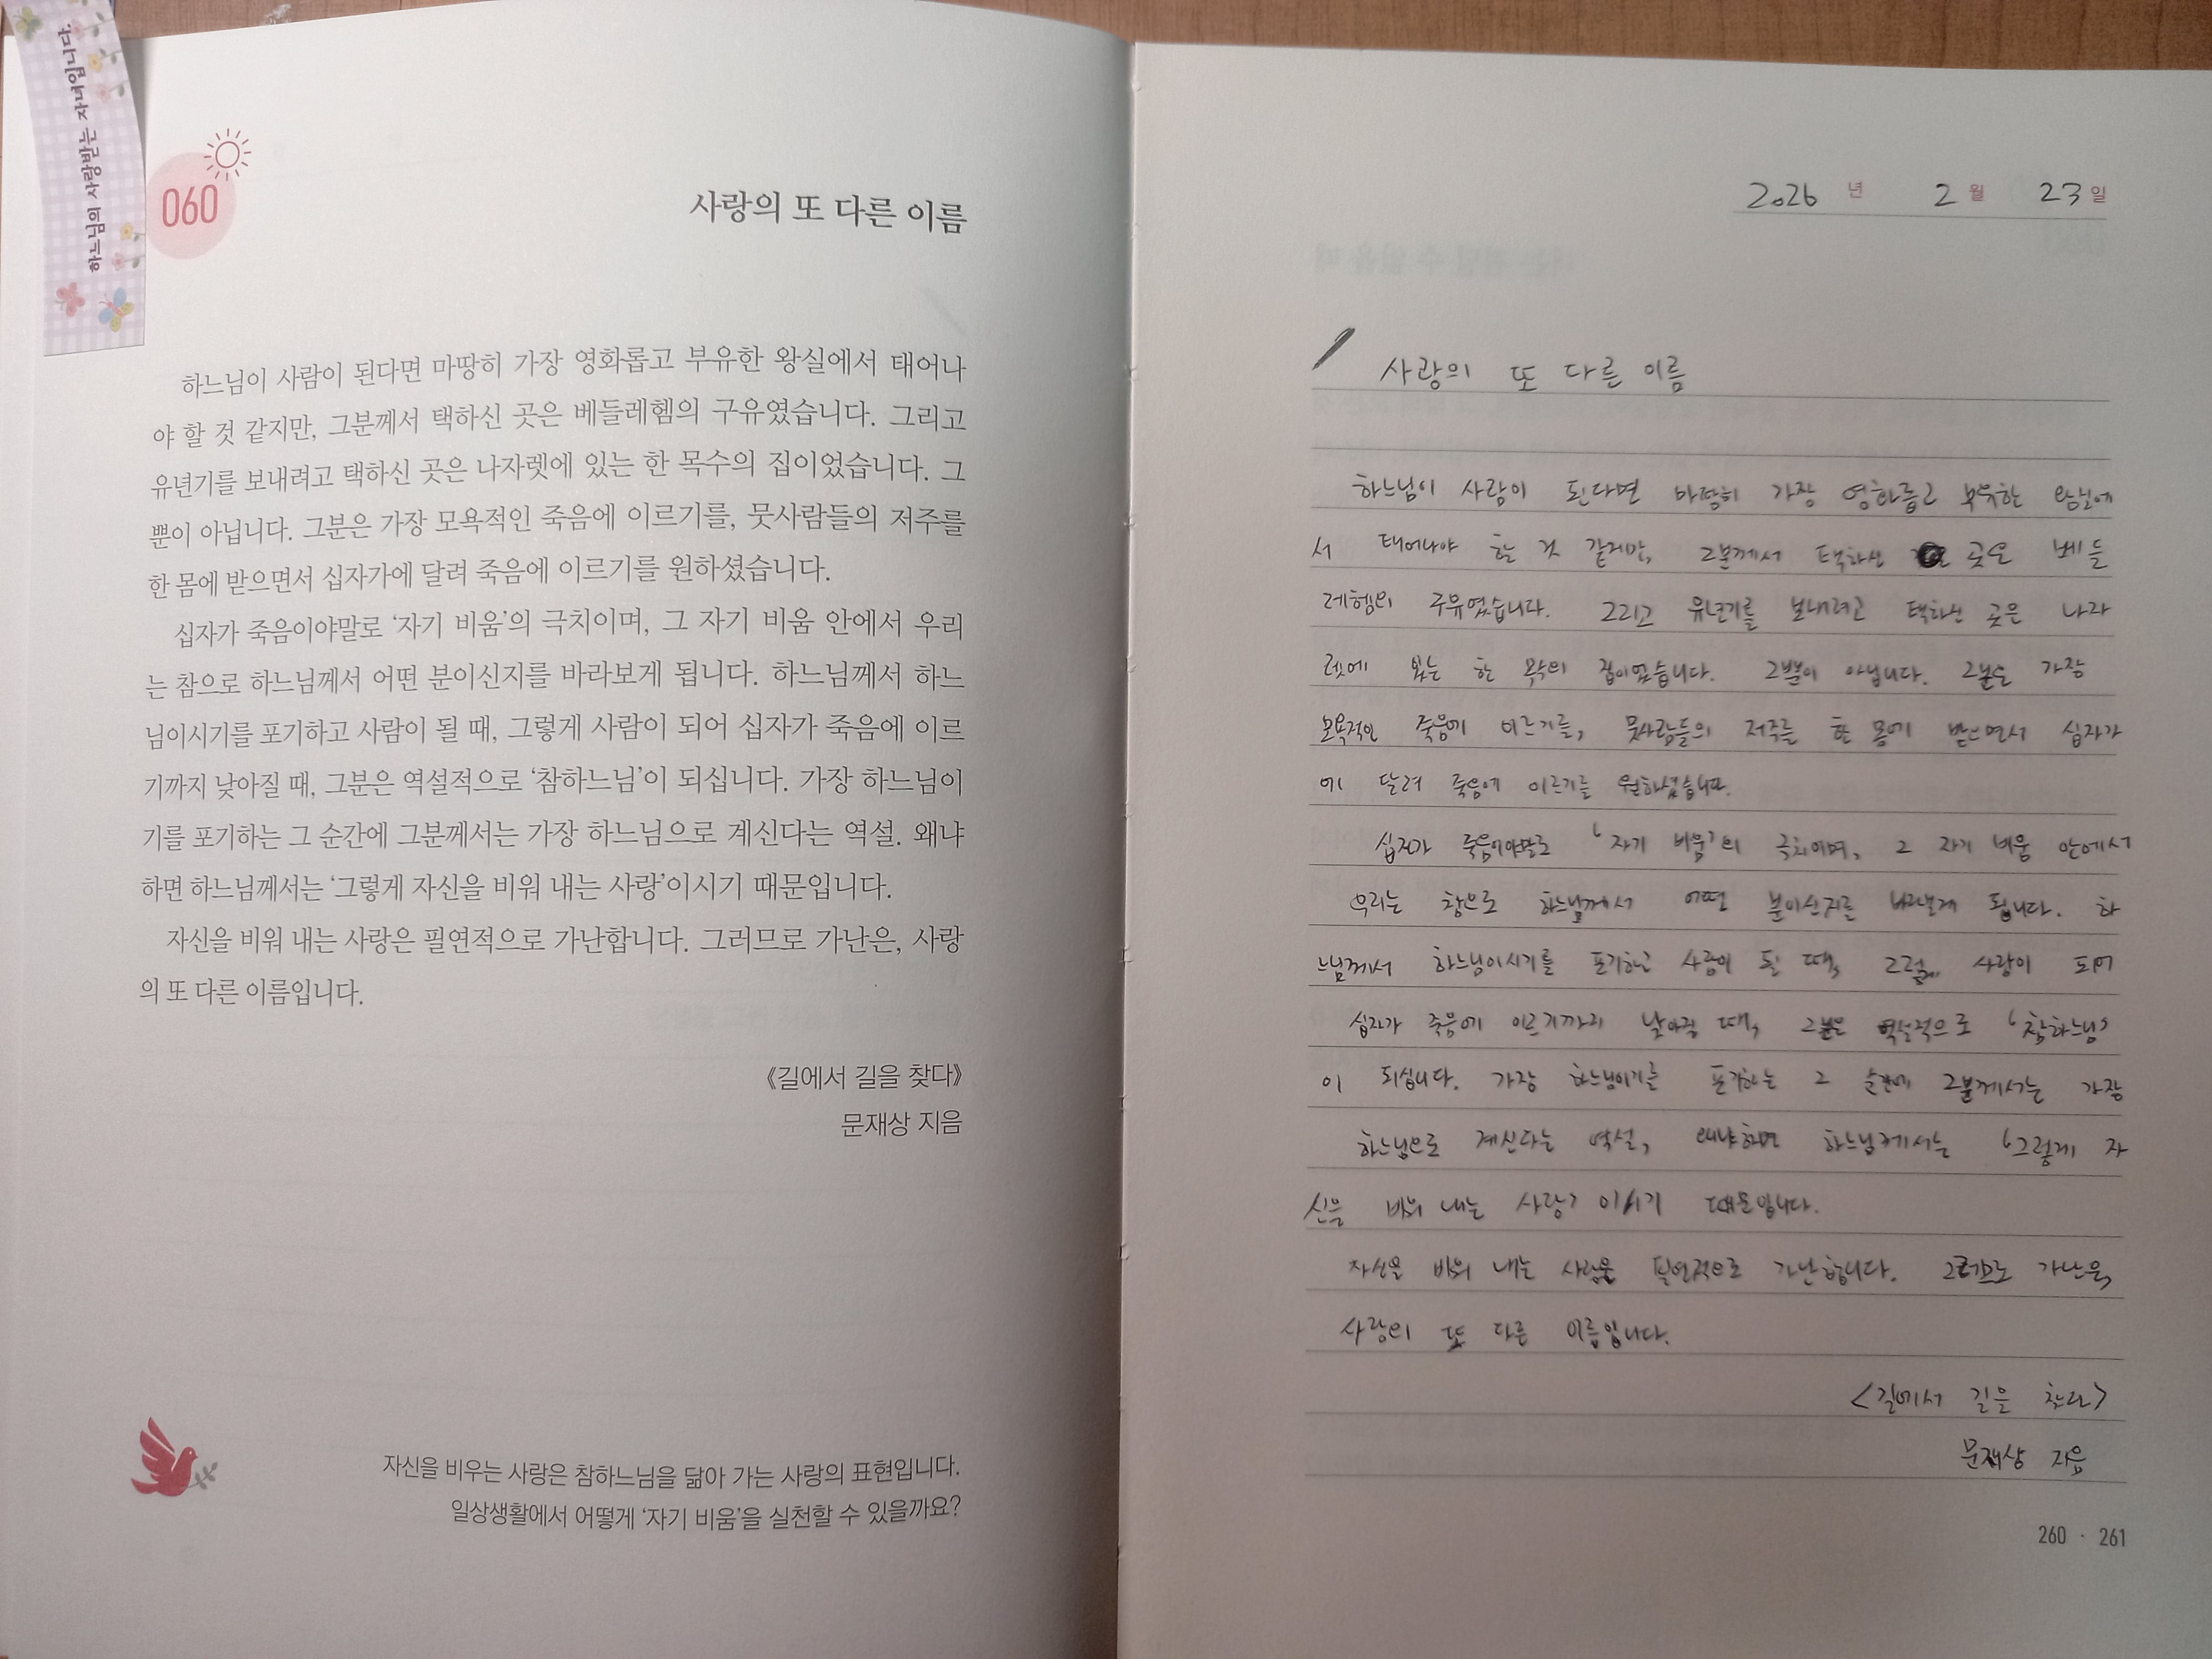 하느님의 사랑받는 자녀입니다.
060
사랑의 또 다른 이름
하느님이 사람이 된다면 마땅히 가장 영화롭고 부유한 왕실에서 태어나
야 할 것 같지만, 그분께서 택하신 곳은 베들레헴의 구유였습니다. 그리고
유년기를 보내려고 택하신 곳은 나자렛에 있는 한 목수의 집이었습니다. 그
뿐이 아닙니다. 그분은 가장 모욕적인 죽음에 이르기를, 뭇사람들의 저주를
한 몸에 받으면서 십자가에 달려 죽음에 이르기를 원하셨습니다.
십자가 죽음이야말로 ‘자기 비움’의 극치이며, 그 자기 비움 안에서 우리
는 참으로 하느님께서 어떤 분이신지를 바라보게 됩니다. 하느님께서 하느
님이시기를 포기하고 사람이 될 때, 그렇게 사람이 되어 십자가 죽음에 이르
기까지 낮아질 때, 그분은 역설적으로 ‘참하느님’이 되십니다. 가장 하느님이
기를 포기하는 그 순간에 그분께서는 가장 하느님으로 계신다는 역설. 왜냐
하면 하느님께서는 ‘그렇게 자신을 비워 내는 사랑’이시기 때문입니다.
자신을 비워 내는 사랑은 필연적으로 가난합니다. 그러므로 가난은, 사랑
의 또 다른 이름입니다.
《길에서 길을 찾다》
문재상 지음
자신을 비우는 사랑은 참하느님을 닮아 가는 사랑의 표현입니다.
일상생활에서 어떻게 ‘자기 비움’을 실천할 수 있을까요?
2026 년 2 월 23 일
사랑의 또 다른 이름
하느님이 사람이 된다면 마땅히 가장 영화롭고 부유한 왕실에
서 태어나야 할 것 같지만, 그분께서 택하신 곳은 베들
레헴의 구유였습니다. 그리고 유년기를 보내려고 택하신 곳은 나자
렛에 있는 한 목수의 집이었습니다. 그뿐이 아닙니다. 그분은 가장
모욕적인 죽음에 이르기를, 뭇사람들의 저주를 한 몸에 받으면서 십자가
에 달려 죽음에 이르기를 원하셨습니다.
십자가 죽음이야말로 ‘자기 비움’의 극치이며, 그 자기 비움 안에서
우리는 참으로 하느님께서 어떤 분이신지를 됩니다. 하
느님께서 하느님이시기를 포기하고 사람이 될 때, 그렇게 사람이 되어
십자가 죽음에 이르기까지 낮아질 때, 그분은 역설적으로 ‘참하느님’
이 되십니다. 가장 하느님이기를 포기하는 그 순간에 그분께서는 가장
하느님으로 계신다는 역설, 왜냐하면 하느님께서는 ‘그렇게 자
신을 비워 내는 사랑’ 이시기 때문입니다.
자신을 비워 내는 사랑은 필연적으로 가난합니다. 그러므로 가난은,
사랑의 또 다른 이름입니다.
<길에서 길을 찾다>
문재상 지음
260 · 261